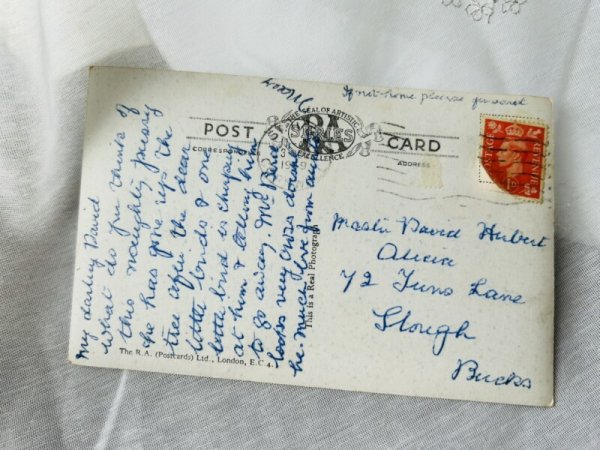 If not home please forward
POST CARD
THE SEAL OF ARTISTIC
EXCELLENCE
SERIES
CORRESPONDENCE
ADDRESS
POSTAGE
REVENUE
1D
My darling David
What do you think of
this naughty pussy
he has gone up the
tree after the dear
little birds & one
little bird is chirping
at him & telling him
to go away. Mrs Bird
looks very cross doesn't
he. much love from
This is a Real Photograph
Master David Herbert
72
Lane
Slough
Bucks
The R.A. (Postcards) Ltd., London, E.C.4.